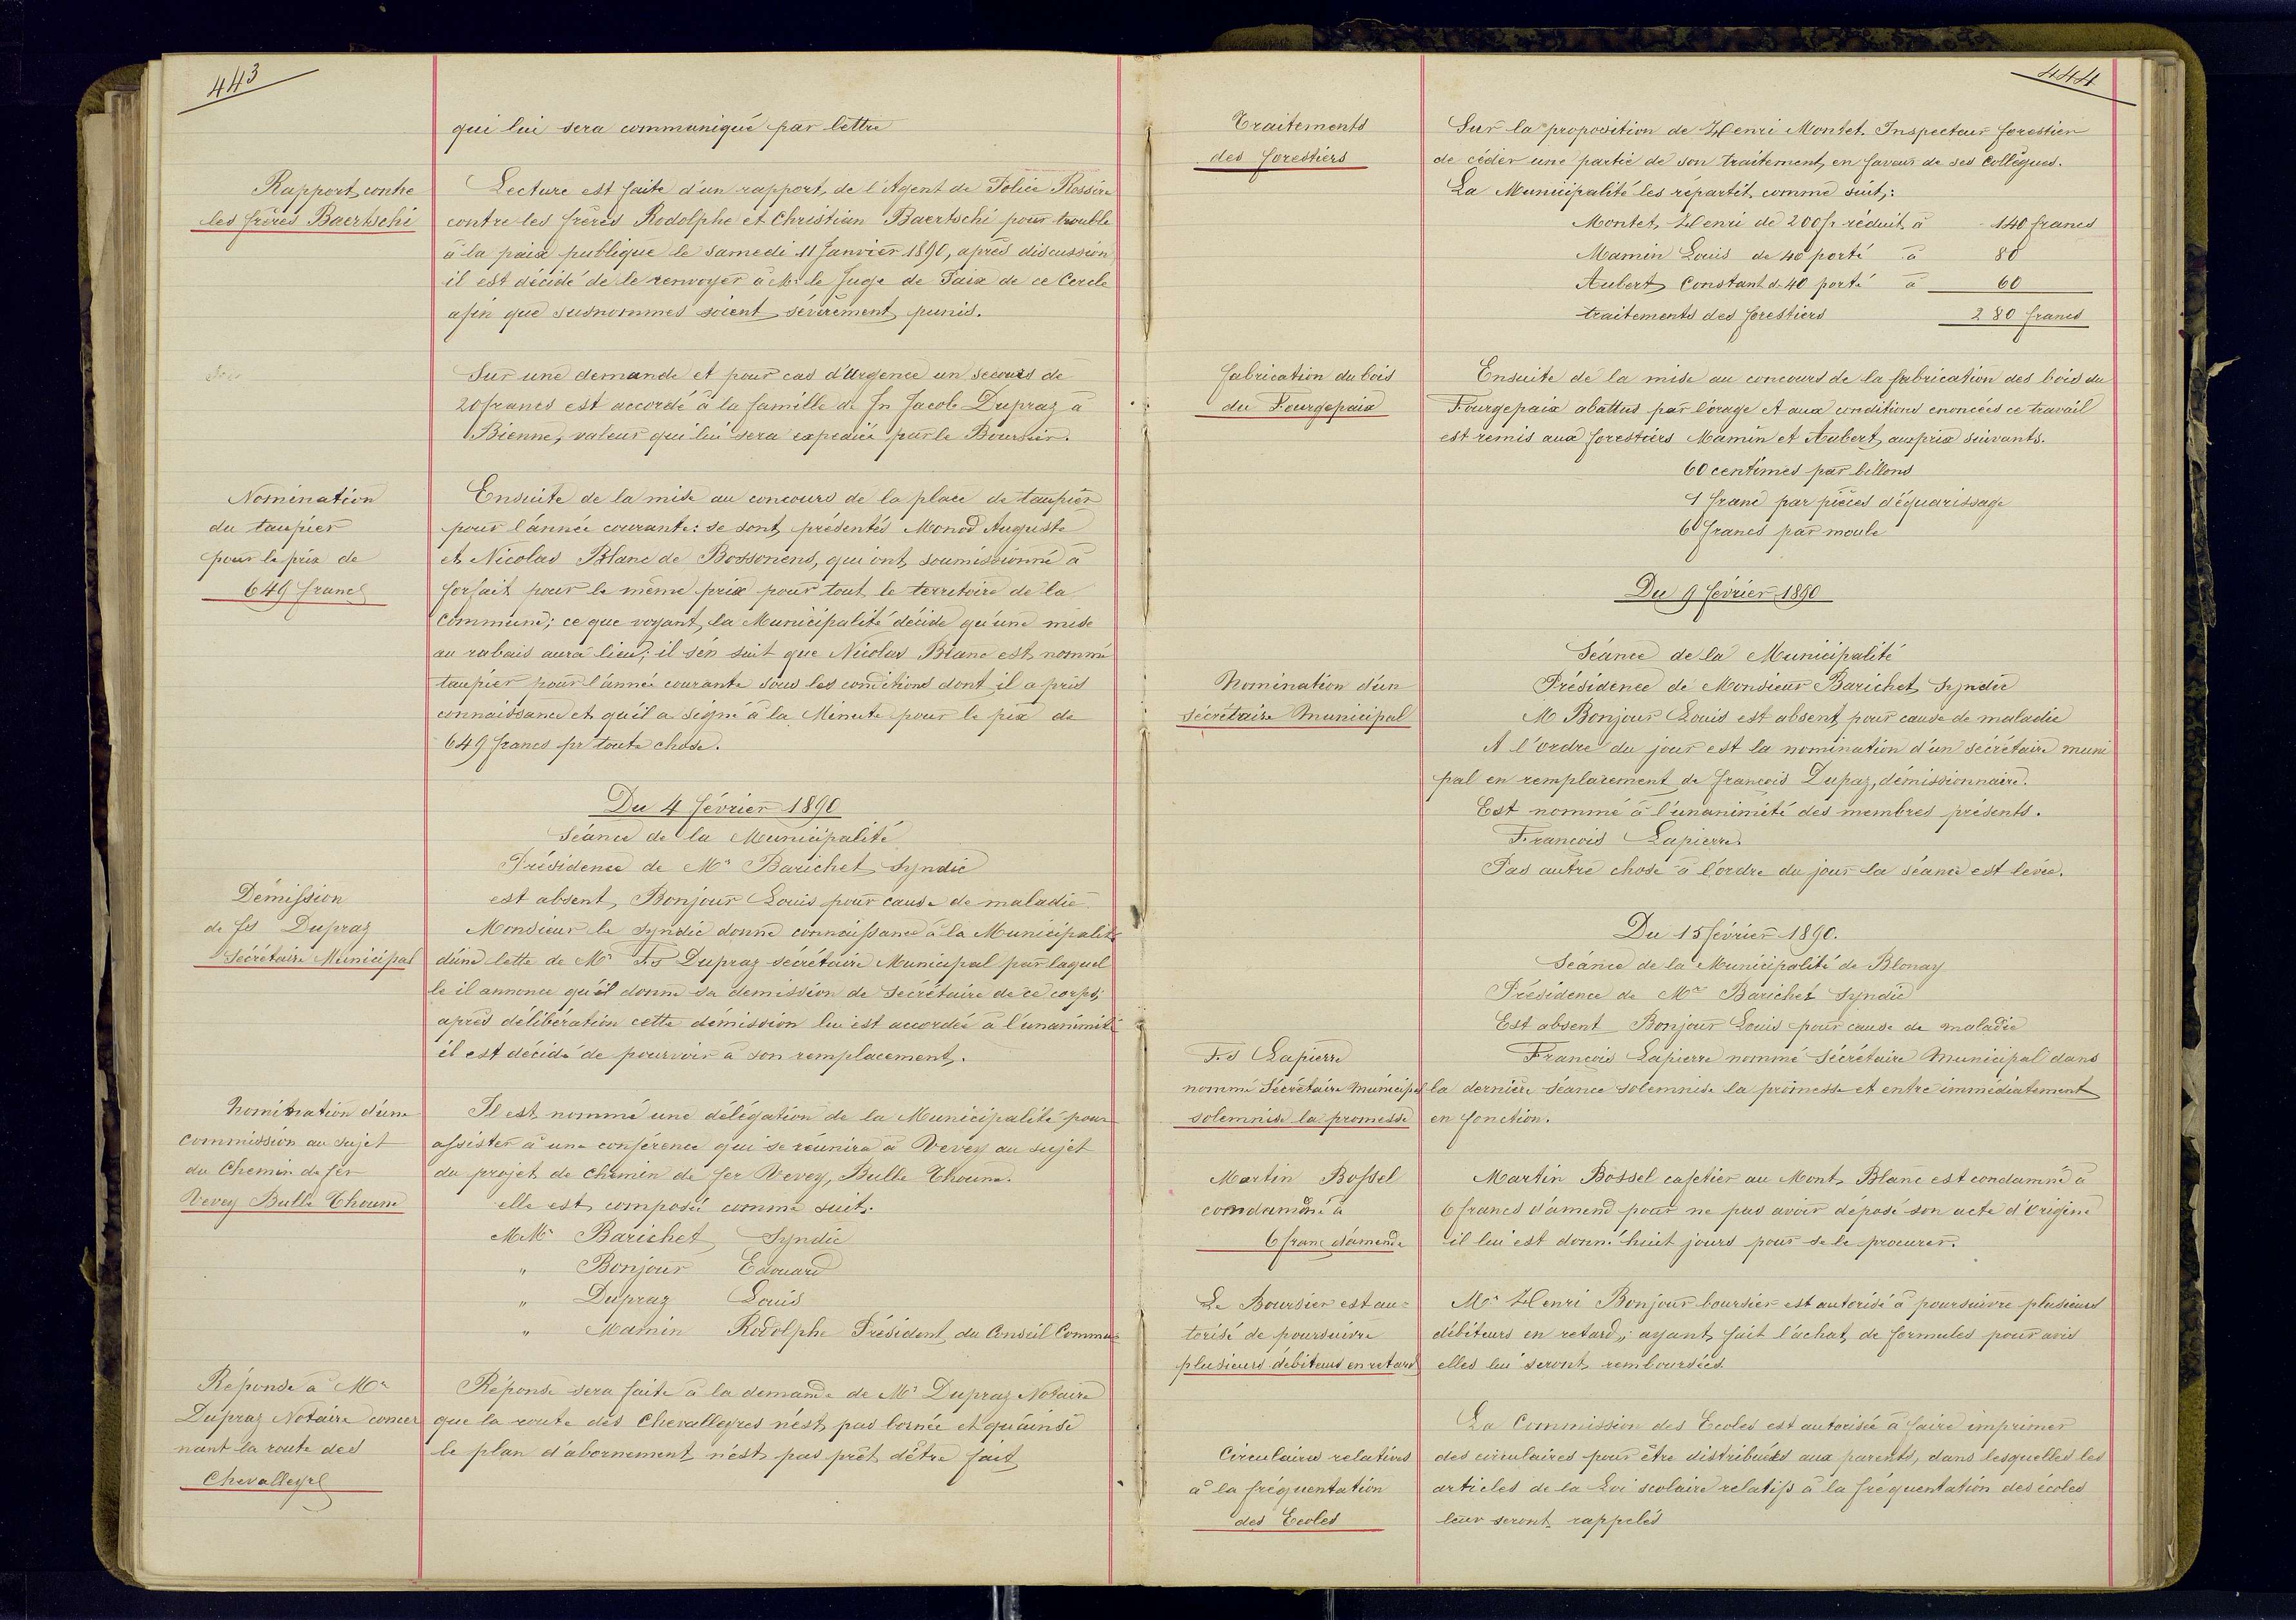 443
qui lui sera communiqué par lettre
Rapport contre
les frères Baertschi
Lecture est faite d'un rapport de l'Agent de Police Rossire
contre les frères Rodolphe et Christian Baertschi pour trouble
à la paix publique le samedi 11 Janvier 1890, après discussion
il est décidé de le renvoyer à Mr le Juge de Paix de ce Cercle
afin que susnommes soient sévèrement punis.
Sur une demande et pour cas d'Urgence un secours de
20 francs est accordé à la famille de Jn Jacob Dupraz à
Bienne, valeur qui lui sera expediée par le Boursier.
Nomination
du taupier
pour le prix de
649 francs
Ensuite de la mise au concours de la place de taupier
pour l'année courante: se sont présentés Monod Auguste
et Nicolas Blanc de Bossonens, qui ont soumissionné à
forfait pour le même prix pour tout le territoire de la
Commune; ce que voyant, la Municipalité décide qu'une mise
au rabais aura lieu; il s'en suit que Nicolas Blanc est nommé
taupier pour l'année courante sous les conditions dont il a pris
connaissance et qu'il a signé à la Minute pour le pix de
649 francs pr toute chose.
Du 4 février 1890
Séance de la Municipalité
Présidence de Mr Barichet Syndic
est absent, Bonjour Louis pour cause de maladie
Démission
de fs Dupraz
Secrétaire Municipal
Monsieur le Syndic donne connaissance à la Municipalité
d'une lette de Mr Fs Dupraz sécrétaire Municipal par laquel
le il annonce qu'il donne sa demission de Secrétaire de ce corps;
après délibération cette démission lui est accordée à l'unanimité
il est décidé de pourvoir à son remplacement.
Nomination d'une
Commission au sujet
du Chemin de fer
Vevey Bulle Thoune
Il est nommé une délégation de la Municipalité pour
assister à une conférence qui se réunira à Vevey au sujet
du projet de chemin de fer Vevey, Bulle Thoune.
elle est composée comme suit:
MMr Barichet Syndic
" Bonjour Edouard
" Dupraz Louis
" Mamin Rodolphe Président du Conseil Commu=
Réponse à Mr
Dupraz Notaire concer
nant la route des
Chevalleyre
Réponse sera faite à la demande de Mr Dupraz Notaire
que la route des Chevalleyres n'est pas bornée et qu'ainsi
le plan d'abornement n'est pas prêt d'être fait
444
Traitements
des forestiers
Sur la proposition de Henri Montet Inspecteur forestier
de céder une partie de son traitement en faveur de ses Collègues.
La Municipalité les répartit comme suit:
Montet Henri de 200 fr réduit à 140 francs
Mamin Louis de 40 porté à 80
Aubert Constant de 40 porté à 60
traitements des forestiers 280 francs
fabrication du bois
du Fourgepaix
Ensuite de la mise au concours de la fabrication des bois du
Fourgepaix abattus par l'orage et aux conditions enoncées ce travail
est remis aux forestiers Mamin et Aubert aux prix suivants.
60 centimes par billons
1 franc par pièces d'équarissage
6 francs par moule
Du 9 février 1890
Séance de la Municipalité
Présidence de Monsieur Barichet Syndic
Nomination d'un
sécrétaire Municipal
M Bonjour Louis est absent pour cause de maladie
A l'ordre du jour est la nomination d'un sécrétaire muni
pal en remplacement de francois Dupaz, démissionnaire.
Est nommé à l'unanimité des membres présents.
Francois Lapierre
Pas autre chose à l'ordre du jour la séance est levée.
Du 15 février 1890.
Séance de la Municipalité de Blonay
Présidence de Mr Barichet Syndic
Est absent Bonjour Louis pour cause de maladie
Fs Lapierre
nommé Sécrétaire Municipal
solemnise la promesse
Francois Lapierre nommé Sécrétaire Municipal dans
la dernière séance solemnise la promesse et entre immédiatement
en fonction.
Martin Bossel
condamné à
6 franc d'amende
Martin Bossel cafetier au Mont Blanc est condamné à
6 francs d'amend pour ne pas avoir déposé son acte d'Origine
il lui est donné huit jours pour se le procurer.
Le Boursier est au=
torisé de poursuivre
plusieurs débiteurs en retard
Mr Henri Bonjour boursier est autorisé à poursuivre plusieurs
débiteurs en retard; ayant fait l'achat de formules pour avis
elles lui seront remboursées
Circulaires relatives
à la fréquentation
des Ecoles
La Commission des Ecoles est autorisée à faire imprimer
des circulaires pour être distribuées aux parents, dans lesquelles les
articles de la Loi scolaire relatifs à la fréquentation des écoles
leur seront rappelés